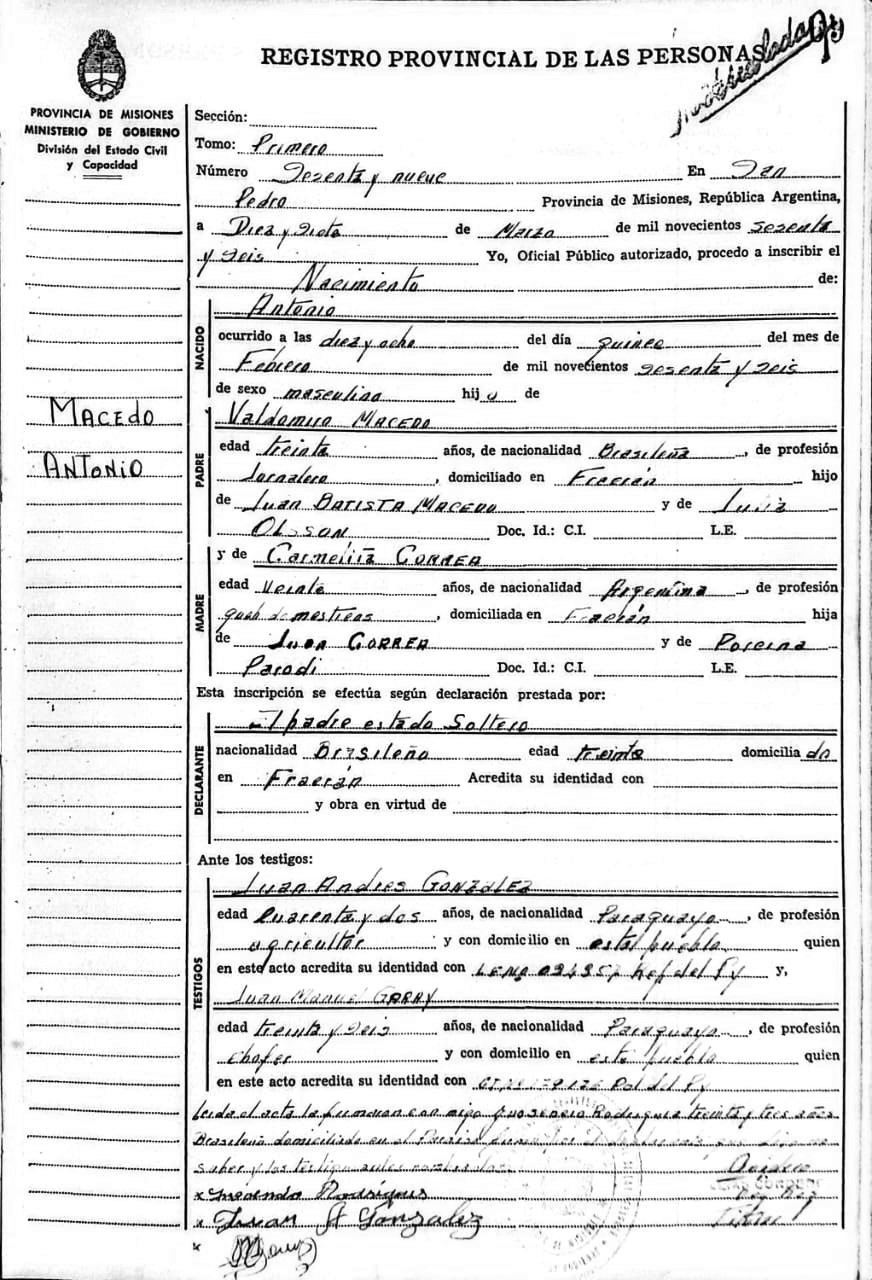 REGISTRO PROVINCIAL DE LAS PERSONAS
PROVINCIA DE MISIONES
MINISTERIO DE GOBIERNO
División del Estado Civil
y Capacidad
Sección:
Tomo: Primero
Número Sesenta y nueve En San
Pedro Provincia de Misiones, República Argentina,
a Diez y Siete de Marzo de mil novecientos Sesenta
y Seis Yo, Oficial Público autorizado, procedo a inscribir el
Nacimiento de:
NACIDO
Antonio
ocurrido a las diez y ocho del día quince del mes de
Febrero de mil novecientos sesenta y Seis
de sexo masculino hijo de
MACEdO
ANToNiO
PADRE
Valdomiro MACEDO
edad treinta años, de nacionalidad Brasileña, de profesión
Jornalero, domiciliado en Fracrán hijo
de Juan BATISTA MACEDO y de Luiza
OLSSON Doc. Id.: C.I. L.E.
MADRE
y de CORREA
edad Veinte años, de nacionalidad Argentina, de profesión
domesticos, domiciliada en Fracrán hija
de Juan CORREA y de
Parodi Doc. Id.: C.I. L.E.
Esta inscripción se efectúa según declaración prestada por:
DECLARANTE
El padre estado Soltero
nacionalidad Brasileño edad treinta domiciliado
en Fracrán Acredita su identidad con
y obra en virtud de
Ante los testigos:
TESTIGOS
Juan Andres GONZALEZ
edad Cuarenta y dos años, de nacionalidad Paraguayo, de profesión
agricultor y con domicilio en este pueblo quien
en este acto acredita su identidad con del Py y,
Juan Manuel GARAY
edad treinta y Seis años, de nacionalidad Paraguayo, de profesión
Chofer y con domicilio en este pueblo quien
en este acto acredita su identidad con Pol del Py
Leida el acta la firman con migo Rodriguez treinta y tres años
Brasileño domiciliado en el
saber y los testigos
x Rodrigues
x Juan A Gonzalez
x